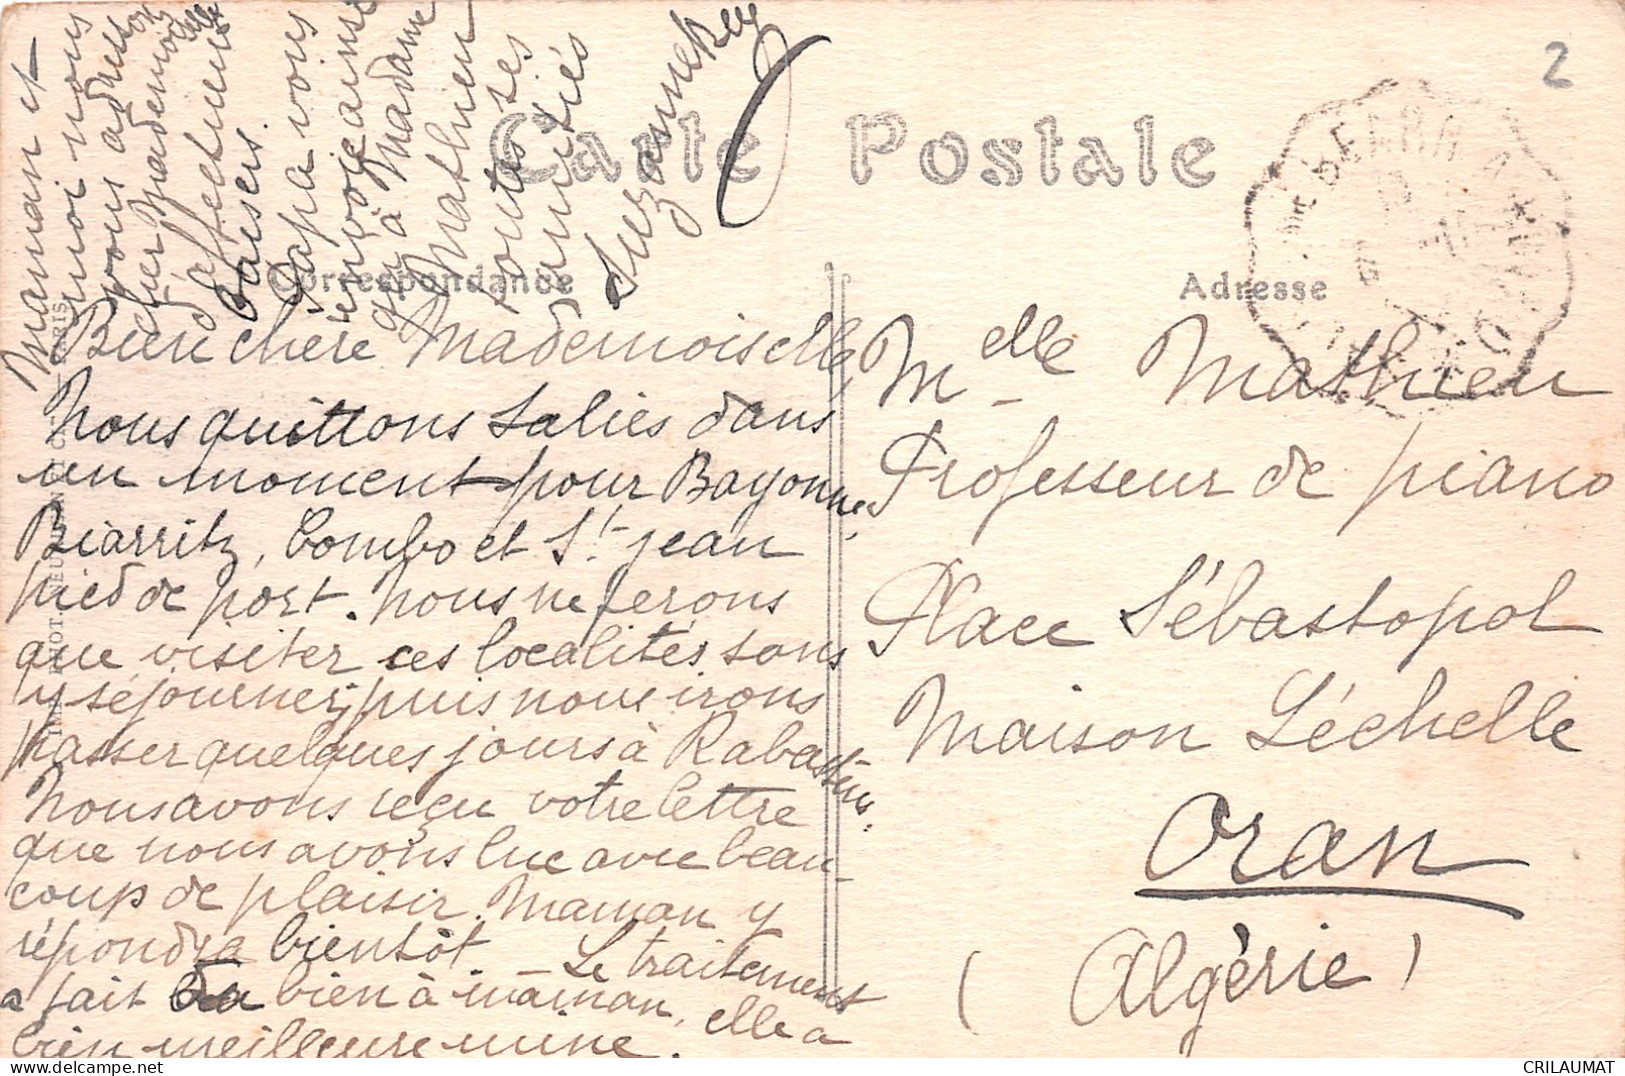 Carte Postale
Correspondance
Adresse
2
Bien chère Mademoiselle,
Nous quittons Salies dans
un moment pour Bayonne,
Biarritz, Combo et St-jean
pied de port. Nous ne ferons
que visiter ces localités sans
y séjourner, puis nous irons
passer quelques jours à Rabastens.
Nous avons reçu votre lettre
que nous avons lue avec beau-
coup de plaisir. Maman y
répondra bientôt. - Le traitement
a fait du bien à maman, elle a
bien meilleure mine.
Maman et
moi nous
vous adressons
chère Mademoiselle
d'affectueux
baisers.
Papa vous
envoie ainsi
qu'à Madame
Mathieu
toutes ses
amitiés
Suzanne
Melle Mathieu
Professeur de piano
Place Sébastopol
Maison Léchelle
Oran
(Algérie)
CRILAUMAT